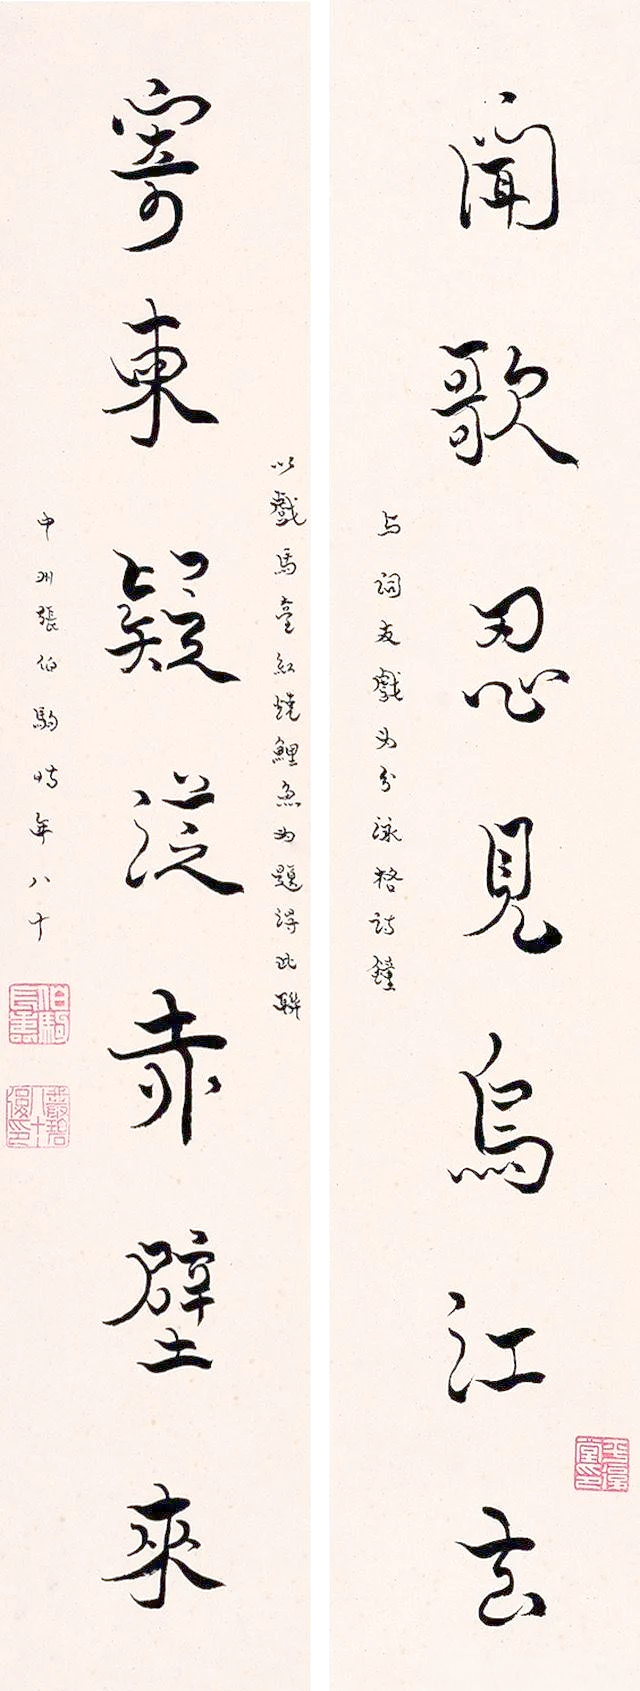 聞歌忍見烏江去
与詞友戲为分詠格詩鐘
平復堂印
以戲馬臺紅燒鯉魚为題得此聯
寄柬疑從赤壁來
中州張伯駒時年八十
伯駒長壽
叢碧八十後印